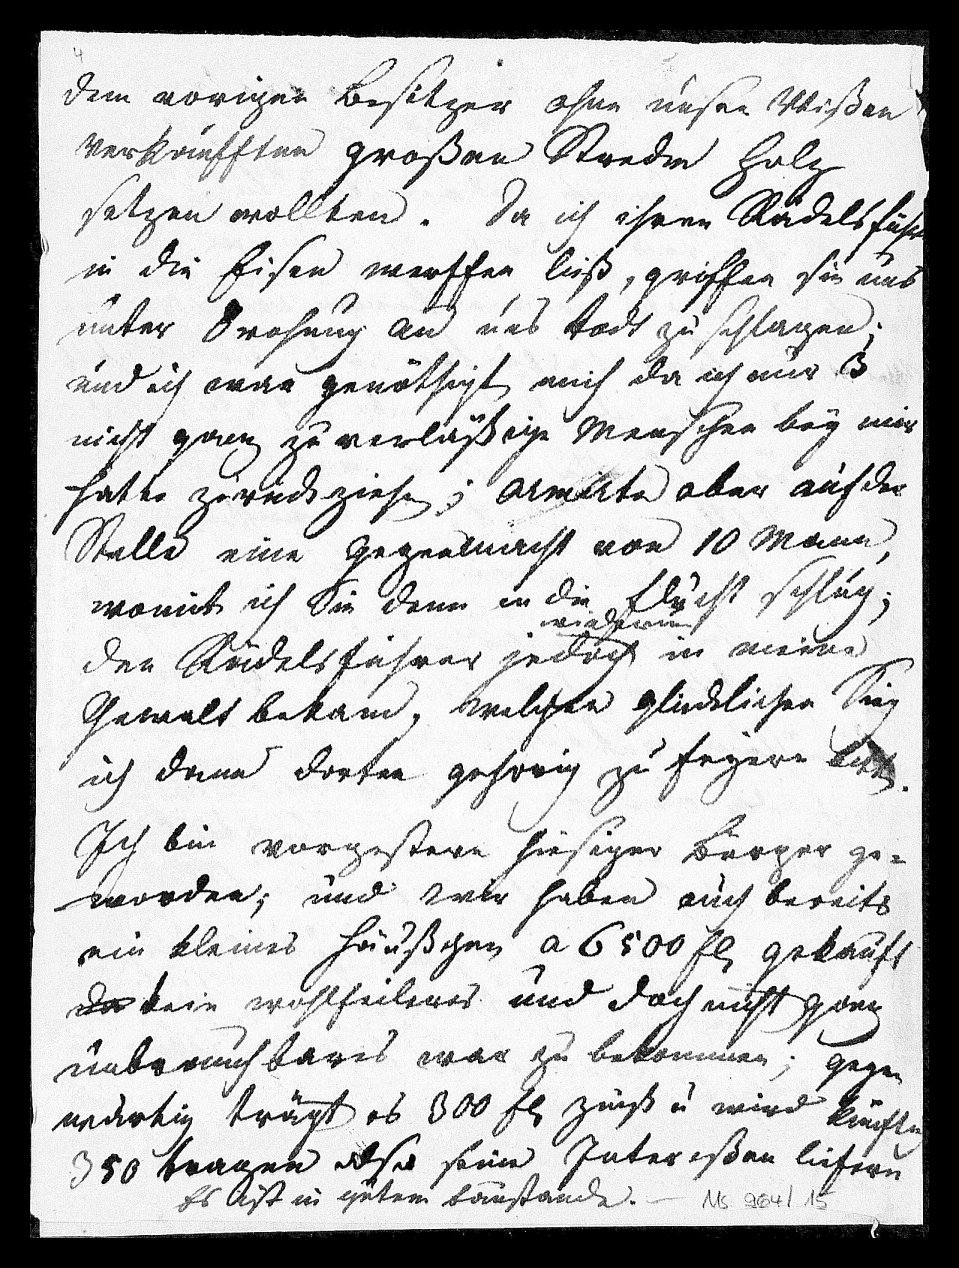 4
dem vorigen Besitzer ohne unser Wißen
verkaufften großen Strecken Holz
setzen wollten. Da ich ihren Rädelsführer
in die Eisen werffen ließ, griffen sie uns
unter Drohung an uns todt zu schlagen;
und ich war genöthigt mich da ich nur 3
nicht ganz zuverläßige Menschen bey mir
hatte zurückziehen; armirte aber auf der
Stelle eine Gegenmacht von 10 Mann,
womit ich Sie denn in die Flucht schlug;
wiederum
den Rädelsführer jedoch in meine
Gewalt bekam, welchen glücklichen Sieg
ich denn dorten gehörig zu feyern
Ich bin vorgestern hiesiger Bürger ge-
worden; und wir haben auch bereits
ein kleines Häußchen a 6500 fl gekauft
da kein wohlfeileres und doch nicht ganz
unbrauchbares war zu bekommen; gegen
wärtig trägt es 300 fl Zinß u wird künftig
350 tragen also seine Interessen liefern
Es ist in gutem Baustande. —
Ms 964/15